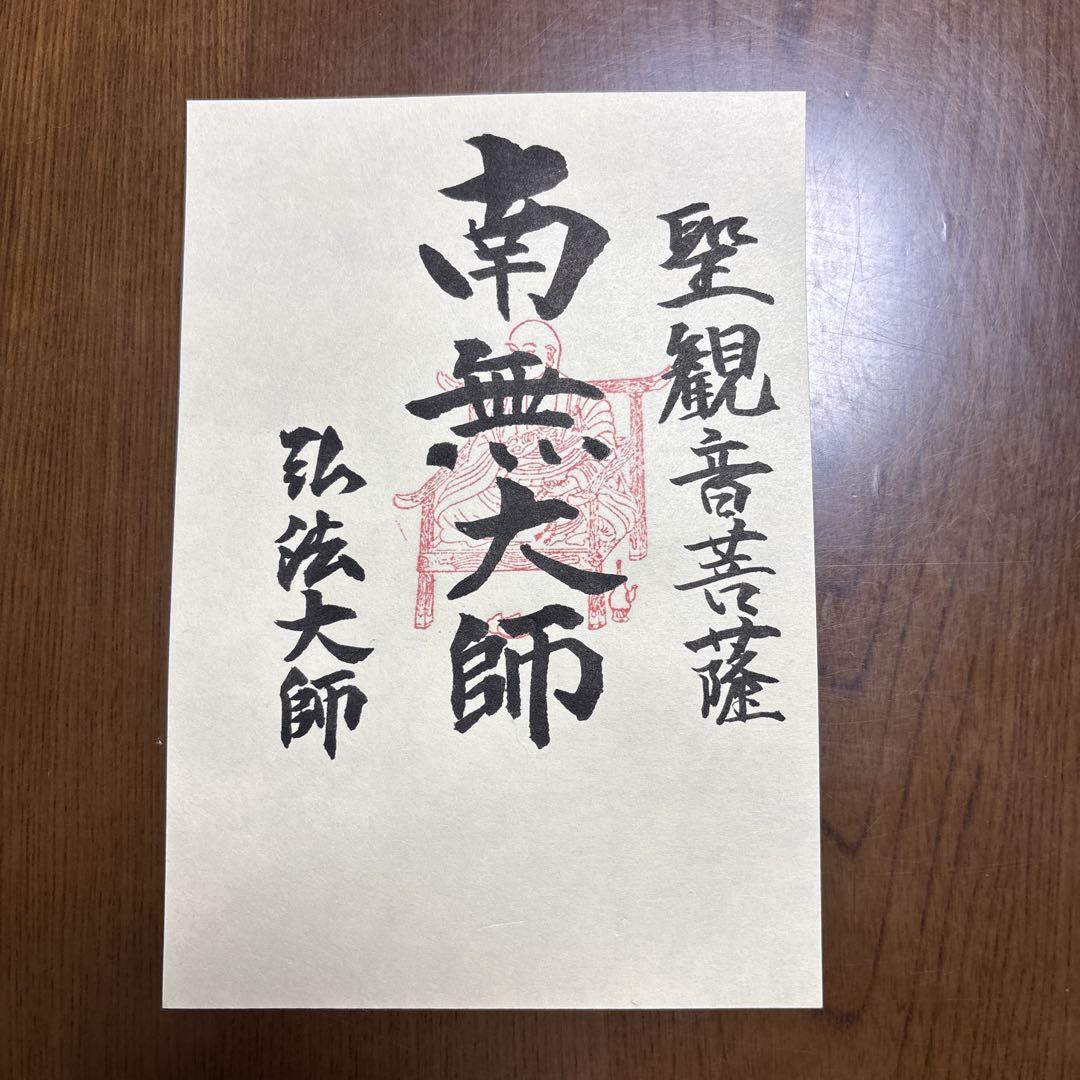 聖観音菩薩
南無大師
弘法大師